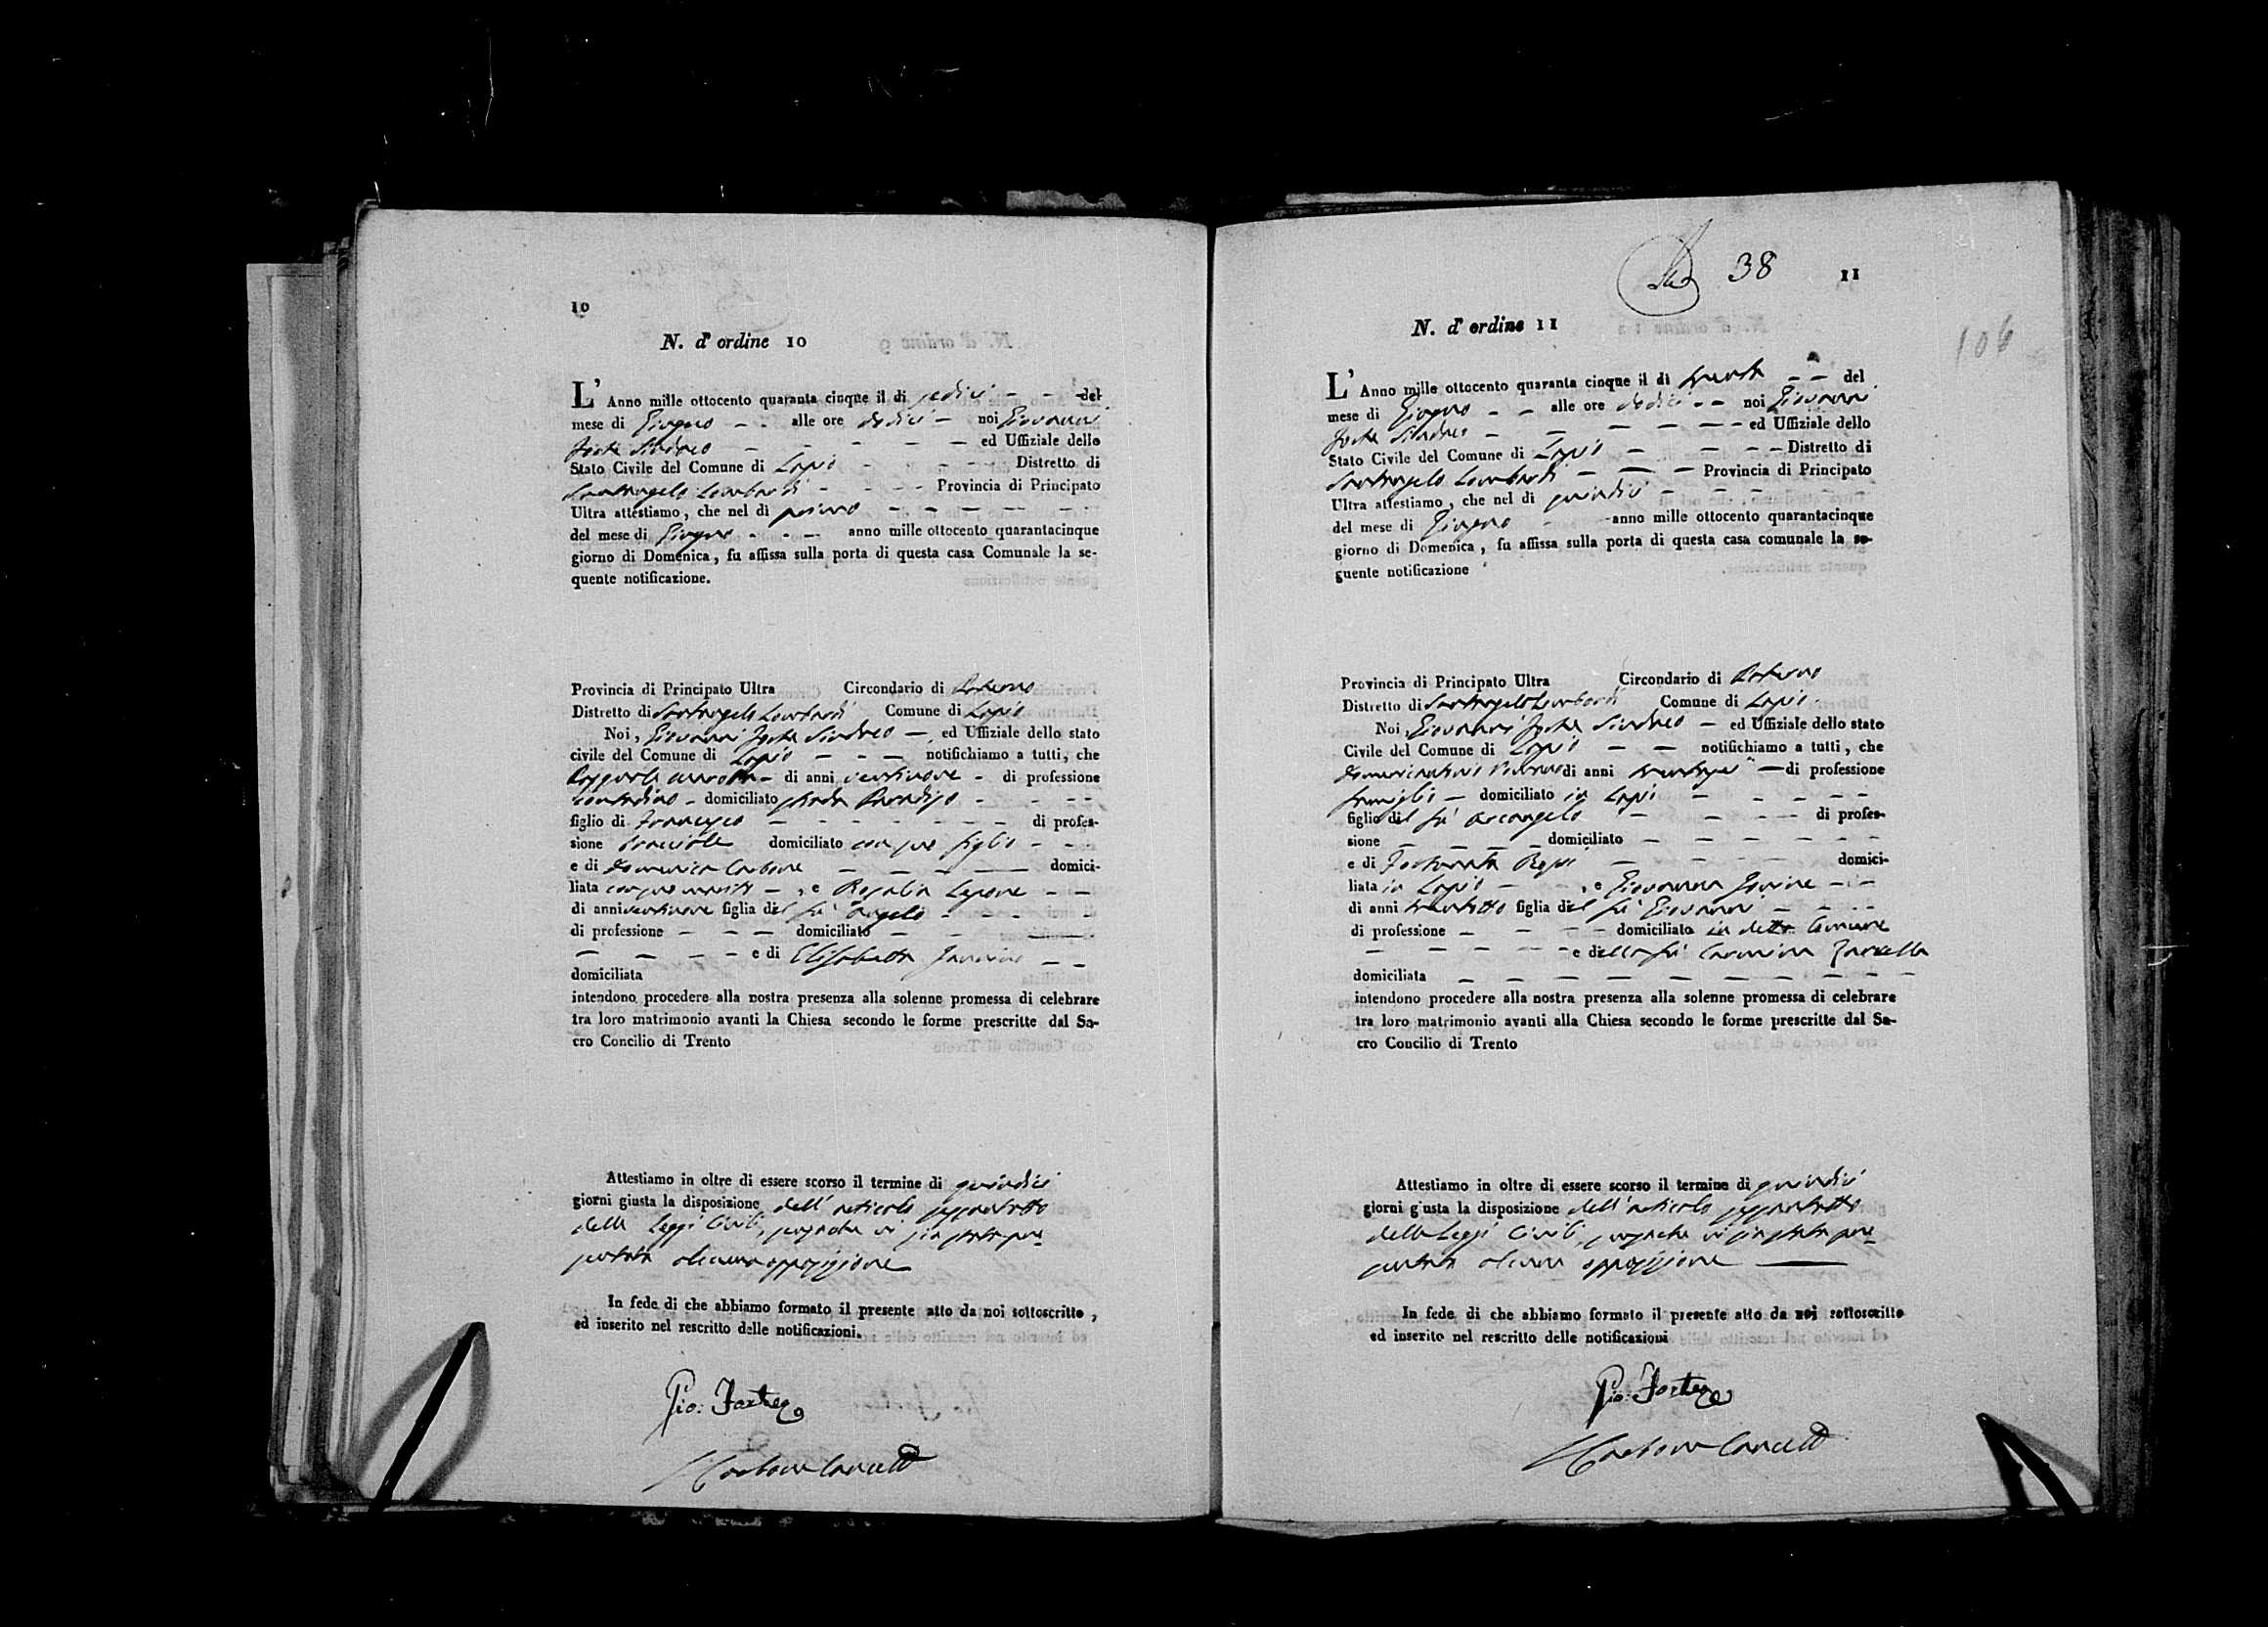 10
N. d' ordine 10
L' Anno mille ottocento quaranta cinque il dì sedici - - del
mese di Giugno - - alle ore dodici - noi Giovanni
Forte Sindaco - - - - - ed Uffiziale dello
Stato Civile del Comune di Lapio - - - - Distretto di
Santangelo Lombardi - - - - Provincia di Principato
Ultra attestiamo, che nel dì primo - - - - -
del mese di Giugno - - - anno mille ottocento quarantacinque
giorno di Domenica, fu affissa sulla porta di questa casa Comunale la se-
quente notificazione.
Provincia di Principato Ultra Circondario di Paterno
Distretto di Santangelo Lombardi Comune di Lapio
Noi, Giovanni Forte Sindaco - ed Uffiziale dello stato
civile del Comune di Lapio - - - notifichiamo a tutti, che
di anni ventinove - di professione
contadino - domiciliato strada Paradiso - - - -
figlio di Francesco - - - - - - - di profes-
sione bracciale domiciliato con suo figlio - - -
e di Domenica Carbone - - - - - domici-
liata con suo marito -, e Rosalia Lepore - -
di anni ventinove figlia del fu Angelo - - - -
di professione - - - domiciliato - - -
- - - - e di Elisabetta - -
domiciliata
intendono procedere alla nostra presenza alla solenne promessa di celebrare
tra loro matrimonio avanti la Chiesa secondo le forme prescritte dal Sa-
cro Concilio di Trento
Attestiamo in oltre di essere scorso il termine di quindici
giorni giusta la disposizione dell' articolo sessantotto
delle Leggi Civili, senza che vi sia stata pre-
sentata alcuna opposizione
In fede di che abbiamo formato il presente atto da noi sottoscritto,
ed inserito nel rescritto delle notificazioni.
Gio: Forte
38
11
106
N. d' ordine 11
L' Anno mille ottocento quaranta cinque il dì trenta - - del
mese di Giugno - - alle ore dodici - - noi Giovanni
Forte Sindaco - - - - - - ed Uffiziale dello
Stato Civile del Comune di Lapio - - - - Distretto di
Santangelo Lombardi - - - Provincia di Principato
Ultra attestiamo, che nel dì quindici - - - -
del mese di Giugno - - anno mille ottocento quarantacinque
giorno di Domenica, fu affissa sulla porta di questa casa comunale la se-
guente notificazione
Provincia di Principato Ultra Circondario di Paterno
Distretto di Santangelo Lombardi Comune di Lapio
Noi, Giovanni Forte Sindaco - ed Uffiziale dello stato
Civile del Comune di Lapio - - notifichiamo a tutti, che
di anni trentasei - di professione
domiciliato in Lapio - - - - -
figlio del fu Arcangelo - - - - di profes-
sione - - - - domiciliato - - - - - -
e di Fortunata - - - - domici-
liata in Lapio - -, e Giovanna - -
di anni trentotto figlia del fu Giovanni - - - -
di professione - - - - domiciliato in detto Comune
- - - - - e della fu Carmina Zarrella
domiciliata - - - - - - - - -
intendono procedere alla nostra presenza alla solenne promessa di celebrare
tra loro matrimonio avanti alla Chiesa secondo le forme prescritte dal Sa-
cro Concilio di Trento
Attestiamo in oltre di essere scorso il termine di quindici
giorni giusta la disposizione dell' articolo sessantotto
delle Leggi Civili, senza che vi sia stata pre-
sentata alcuna opposizione
In fede di che abbiamo formato il presente atto da noi sottoscritto
ed inserito nel rescritto delle notificazioni
Gio: Forte